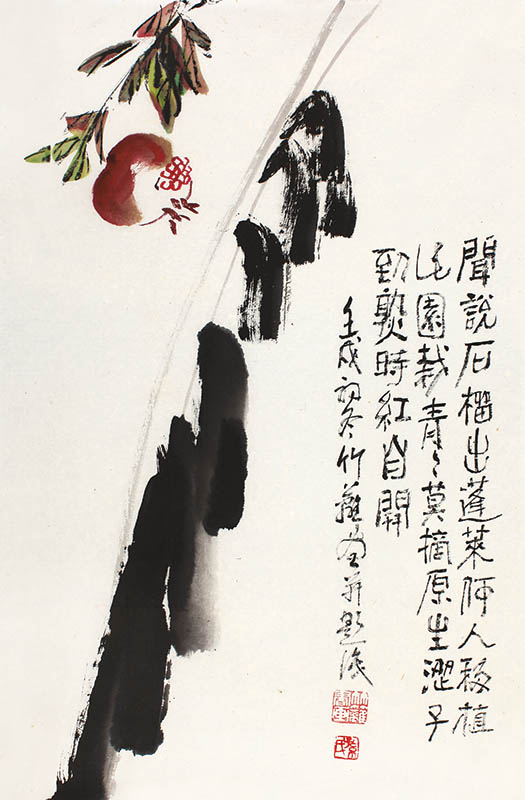 聞說石榴出蓬萊何人移植
此園栽青々莫摘原生澀子
到熟時紅自開
壬戌初冬竹畫并題